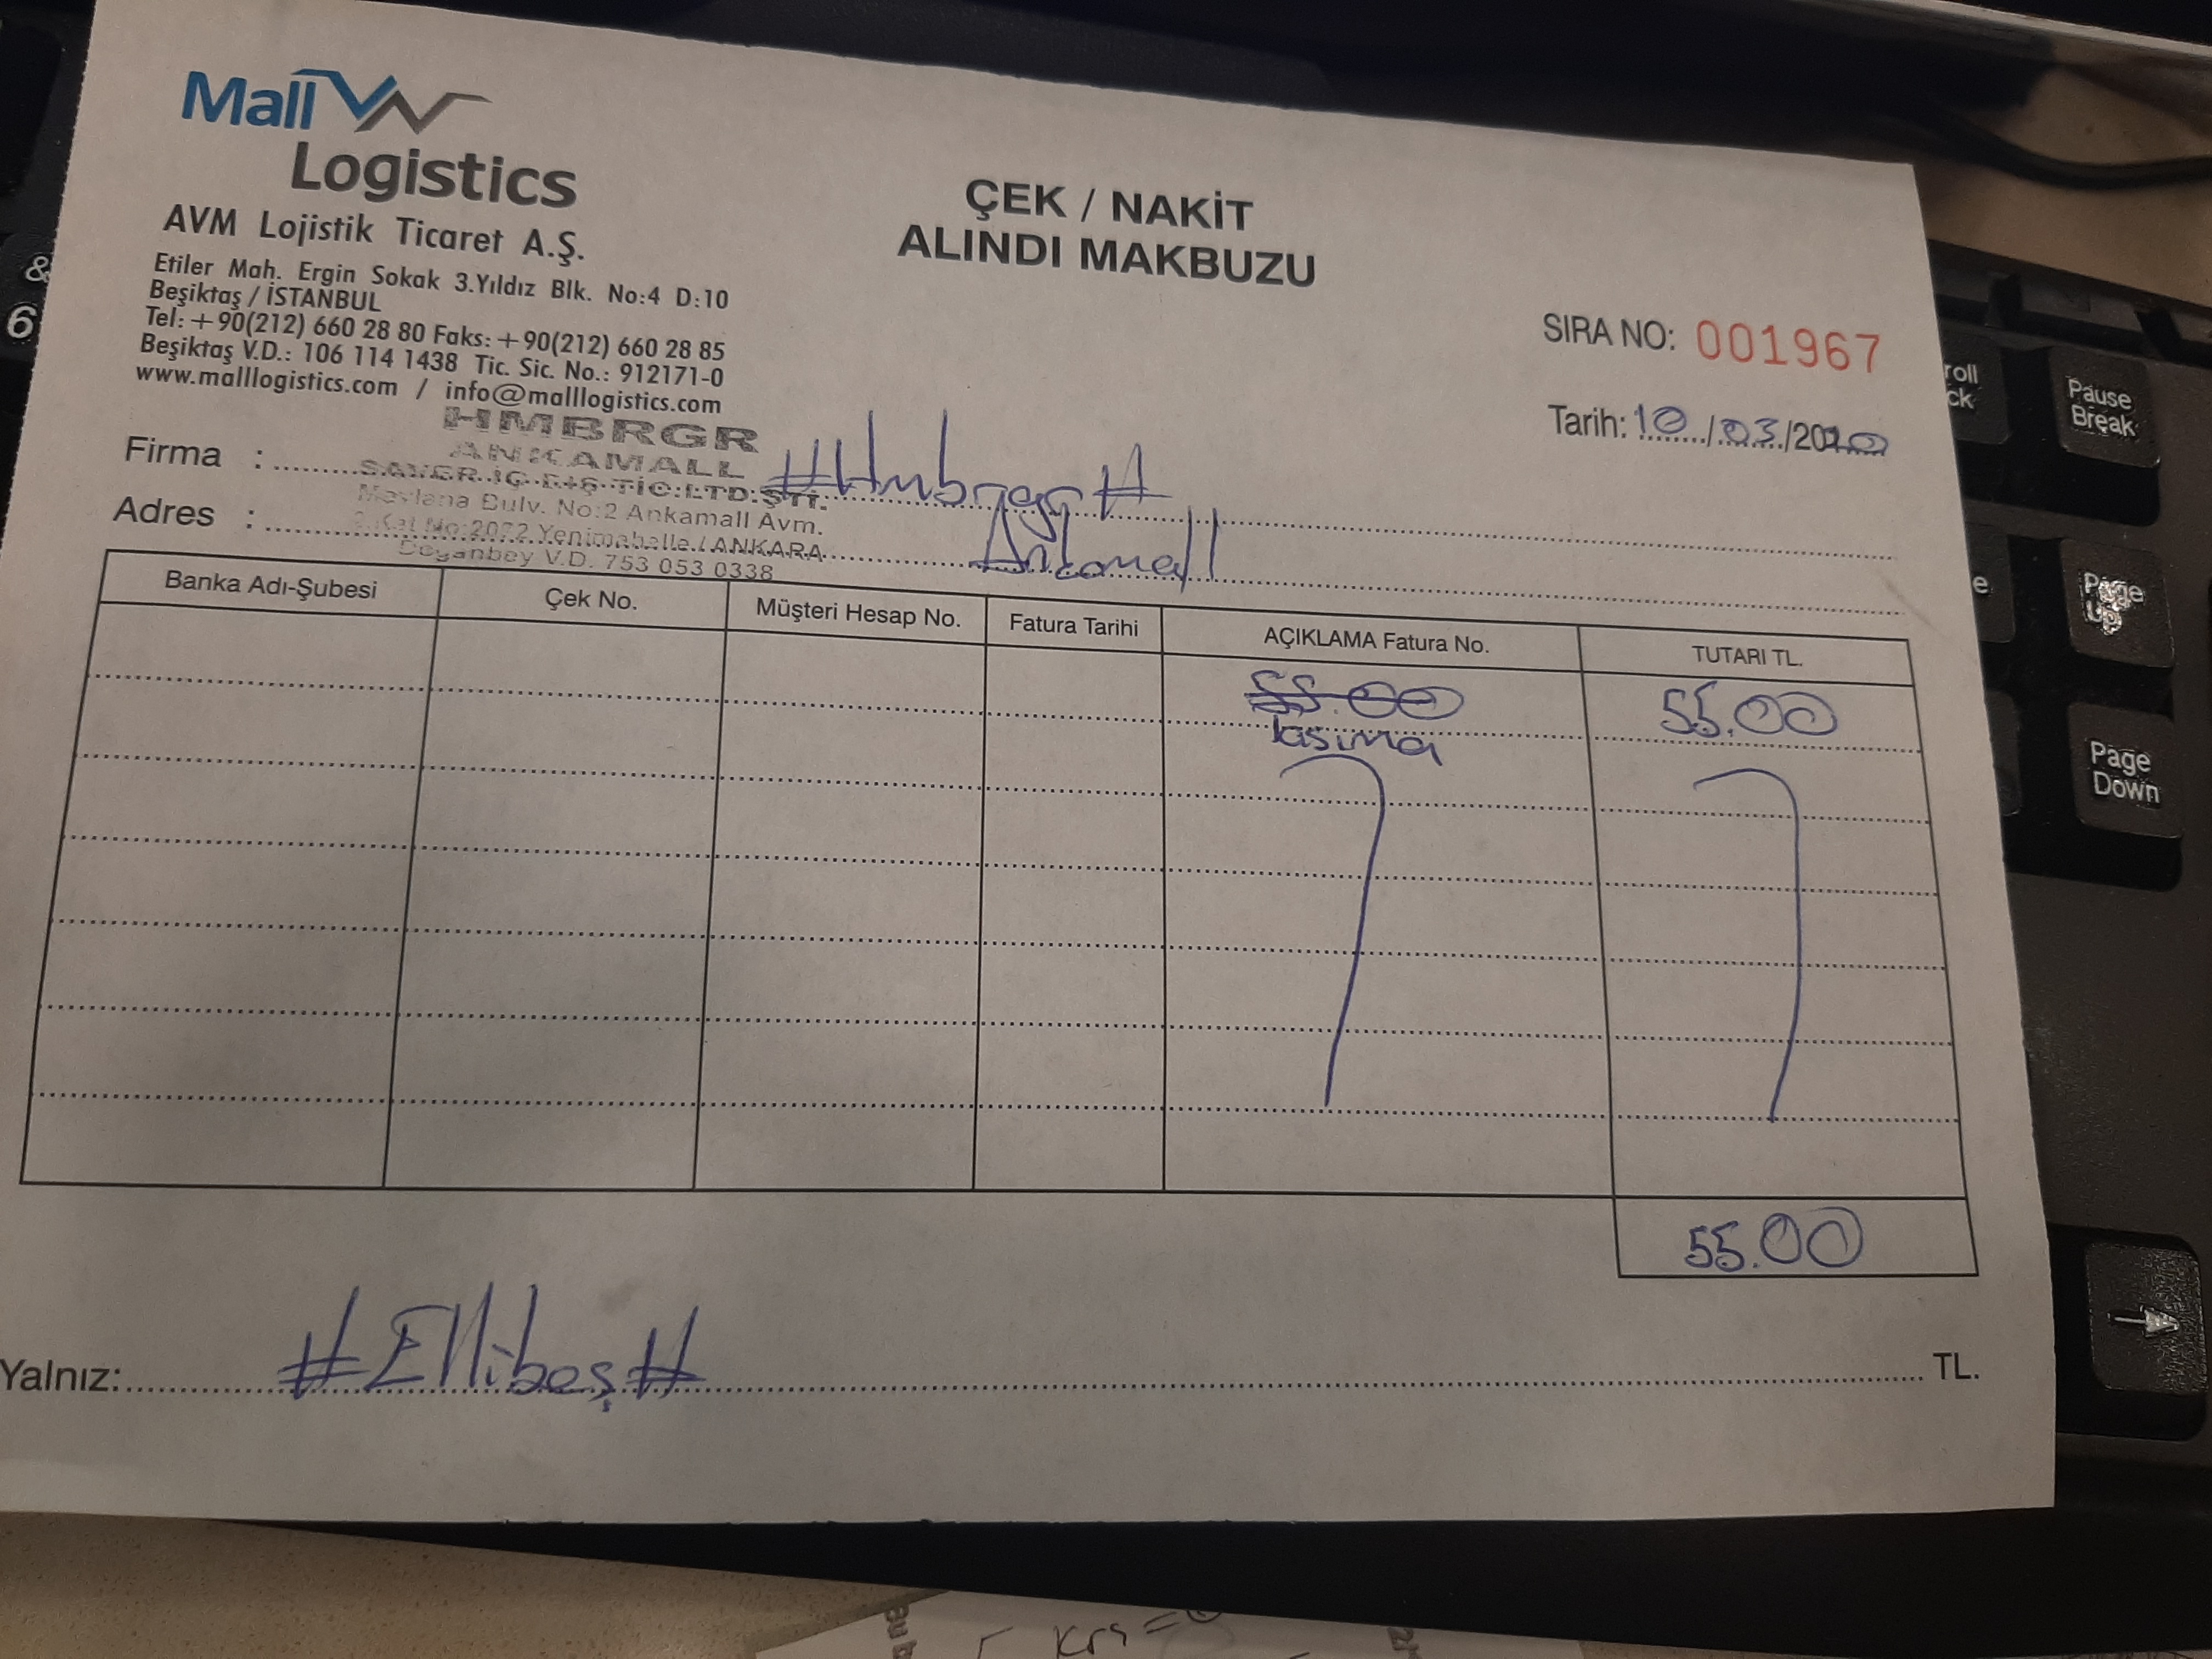 Mall
Logistics
AVM Lojistik Ticaret A.Ş.
Etiler Mah. Ergin Sokak 3.Yıldız Blk. No:4 D:10
Beşiktaş / İSTANBUL
Tel: +90(212) 660 28 80 Faks: +90(212) 660 28 85
Beşiktaş V.D.: 106 114 1438 Tic. Sic. No.: 912171-0
www.malllogistics.com / info@malllogistics.com
ÇEK / NAKİT
ALINDI MAKBUZU
SIRA NO: 001967
Tarih: 10/03/2020
HMBRGR
ANKAMALL
SAVER İÇ DIŞ TİC.LTD.ŞTİ.
Mevlana Bulv. No:2 Ankamall Avm.
Kat No:2072 Yenimahalle / ANKARA
Doğanbey V.D. 753 053 0338
Firma : #Hmbrgr#
Adres : Ankamall
Banka Adı-Şubesi Çek No. Müşteri Hesap No. Fatura Tarihi AÇIKLAMA Fatura No. TUTARI TL.
55.00 55.00
tasıma
55.00
Yalnız: #Ellibeş# TL.
&
6
Pause
Break
Page
Up
Page
Down
roll
ck
e